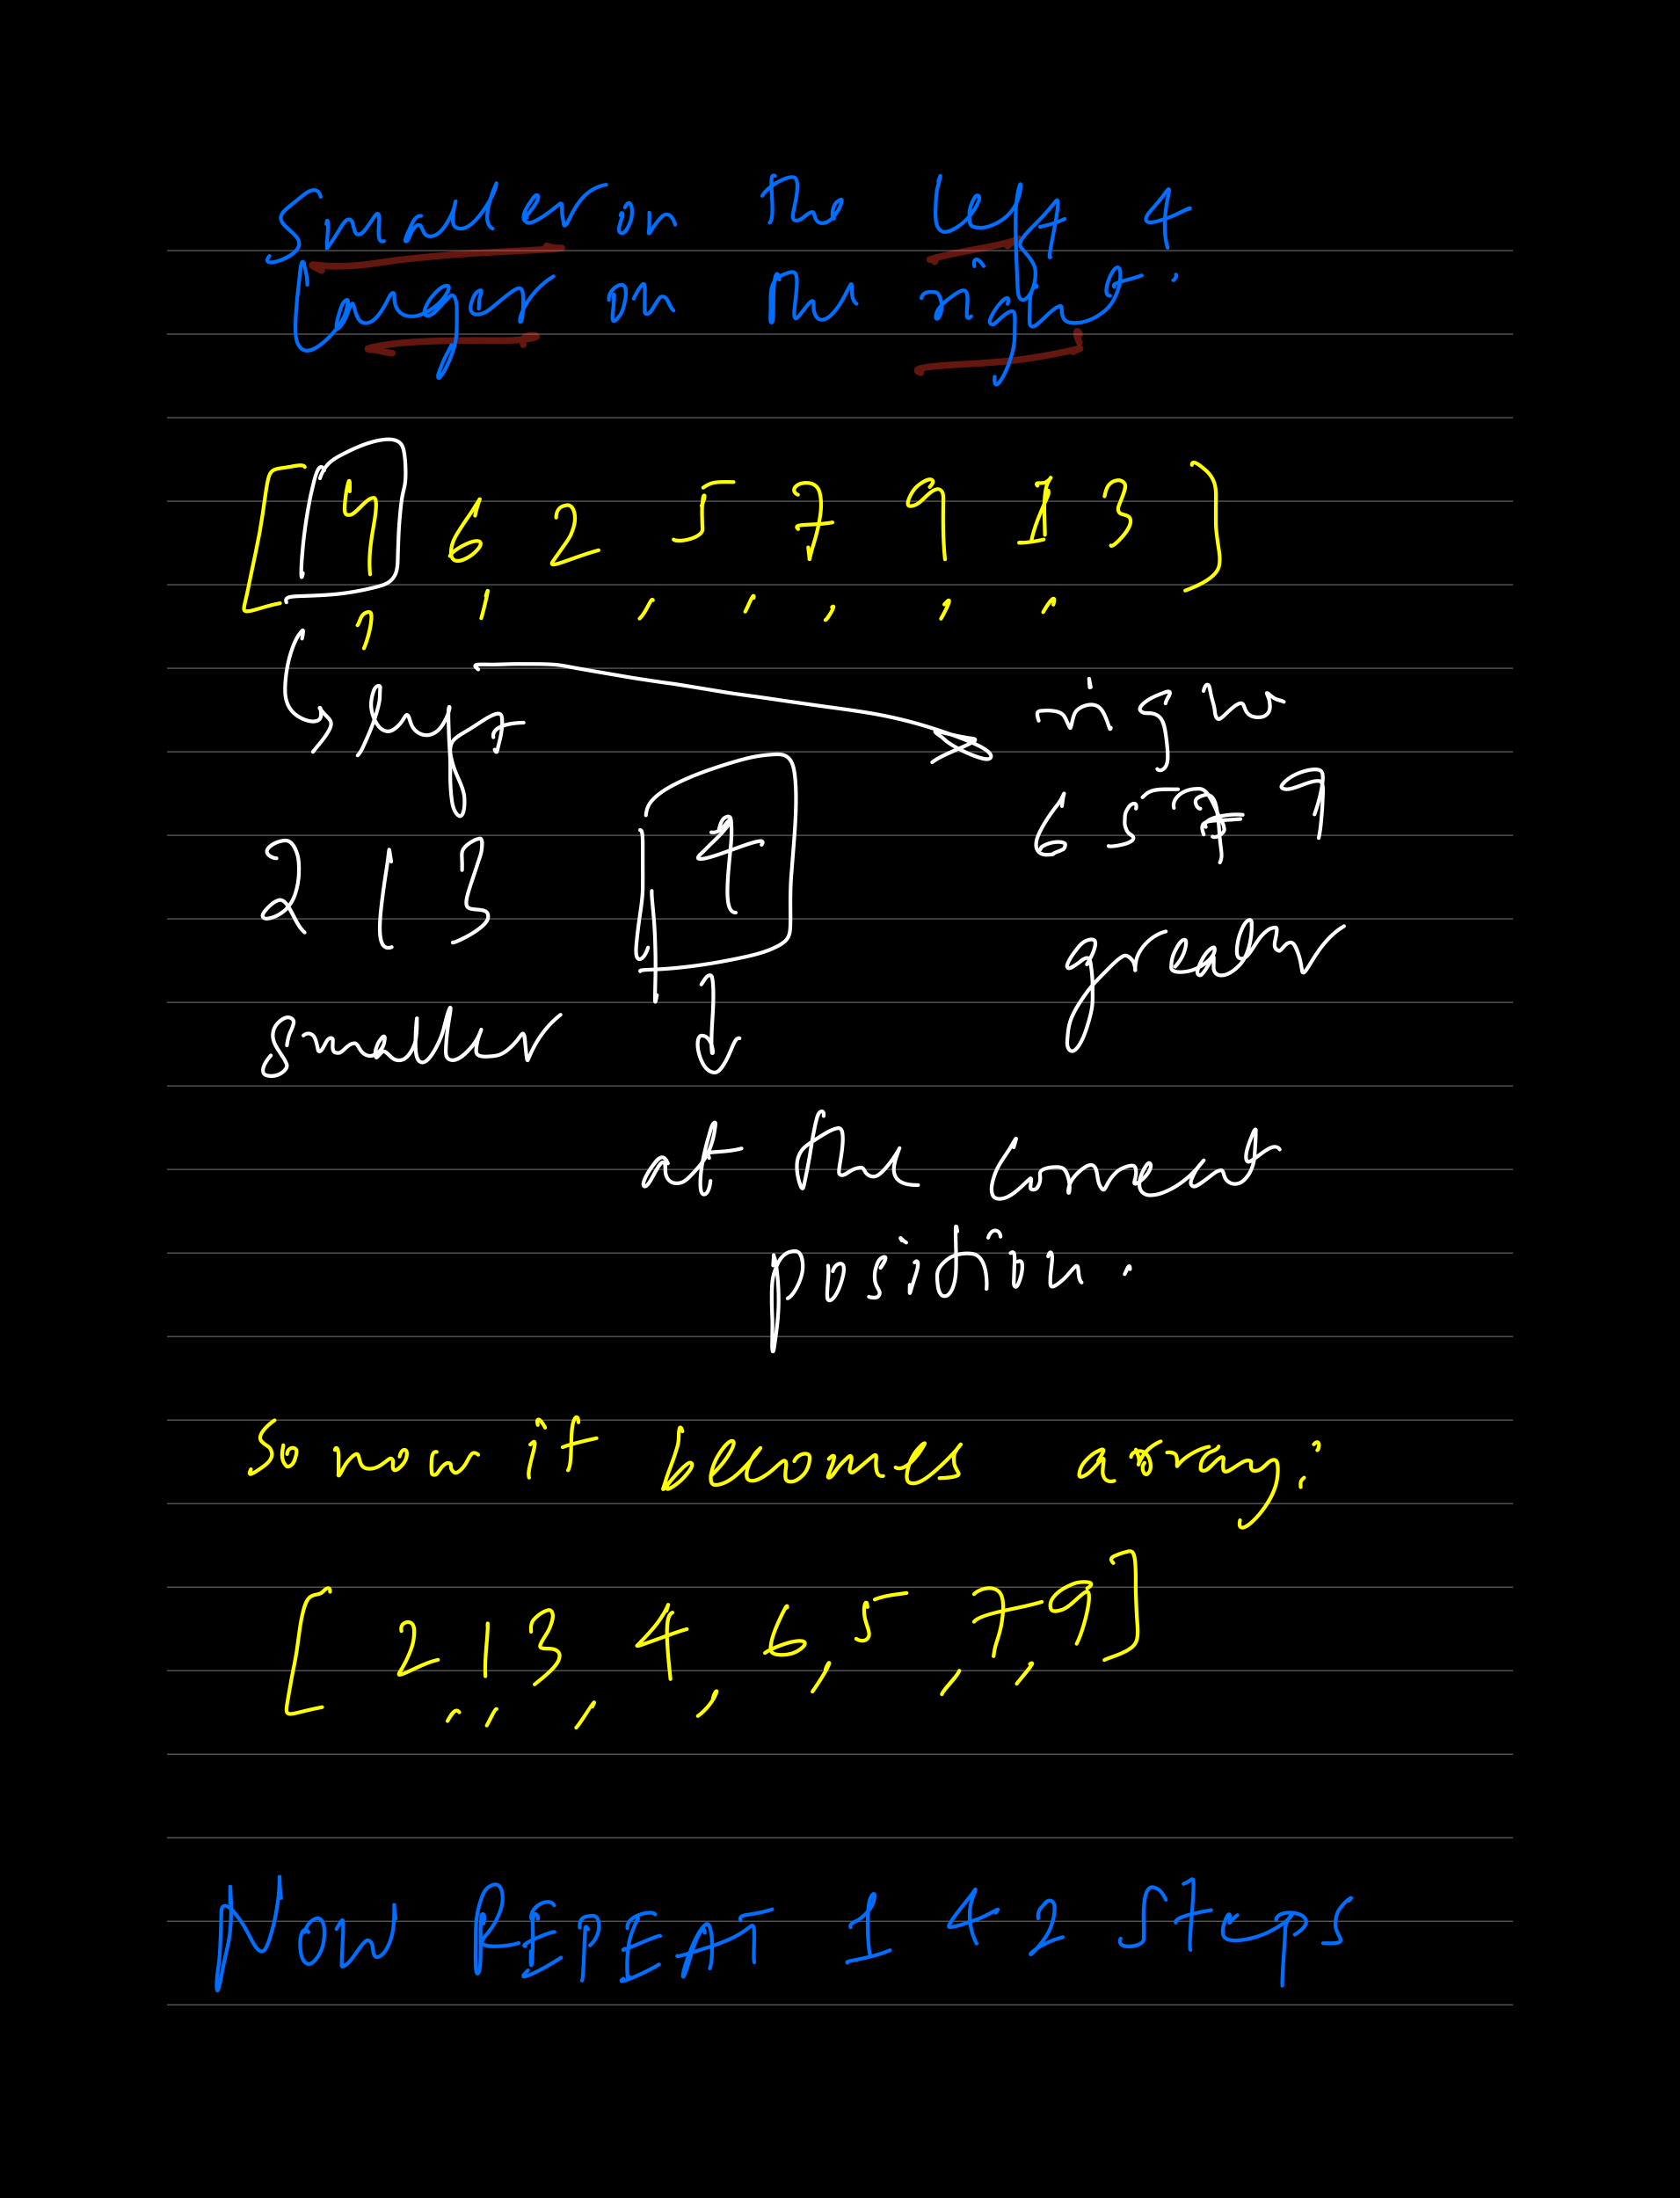 Smaller in the left &
Larger in the right.
[4, 6, 2, 5, 7, 9, 1, 3]
left right
2 1 3 4 6 5 7 9
smaller greater
at the correct
position.
So now it becomes array:
[2, 1, 3, 4, 6, 5, 7, 9]
NOW REPEAT 1 & 2 steps